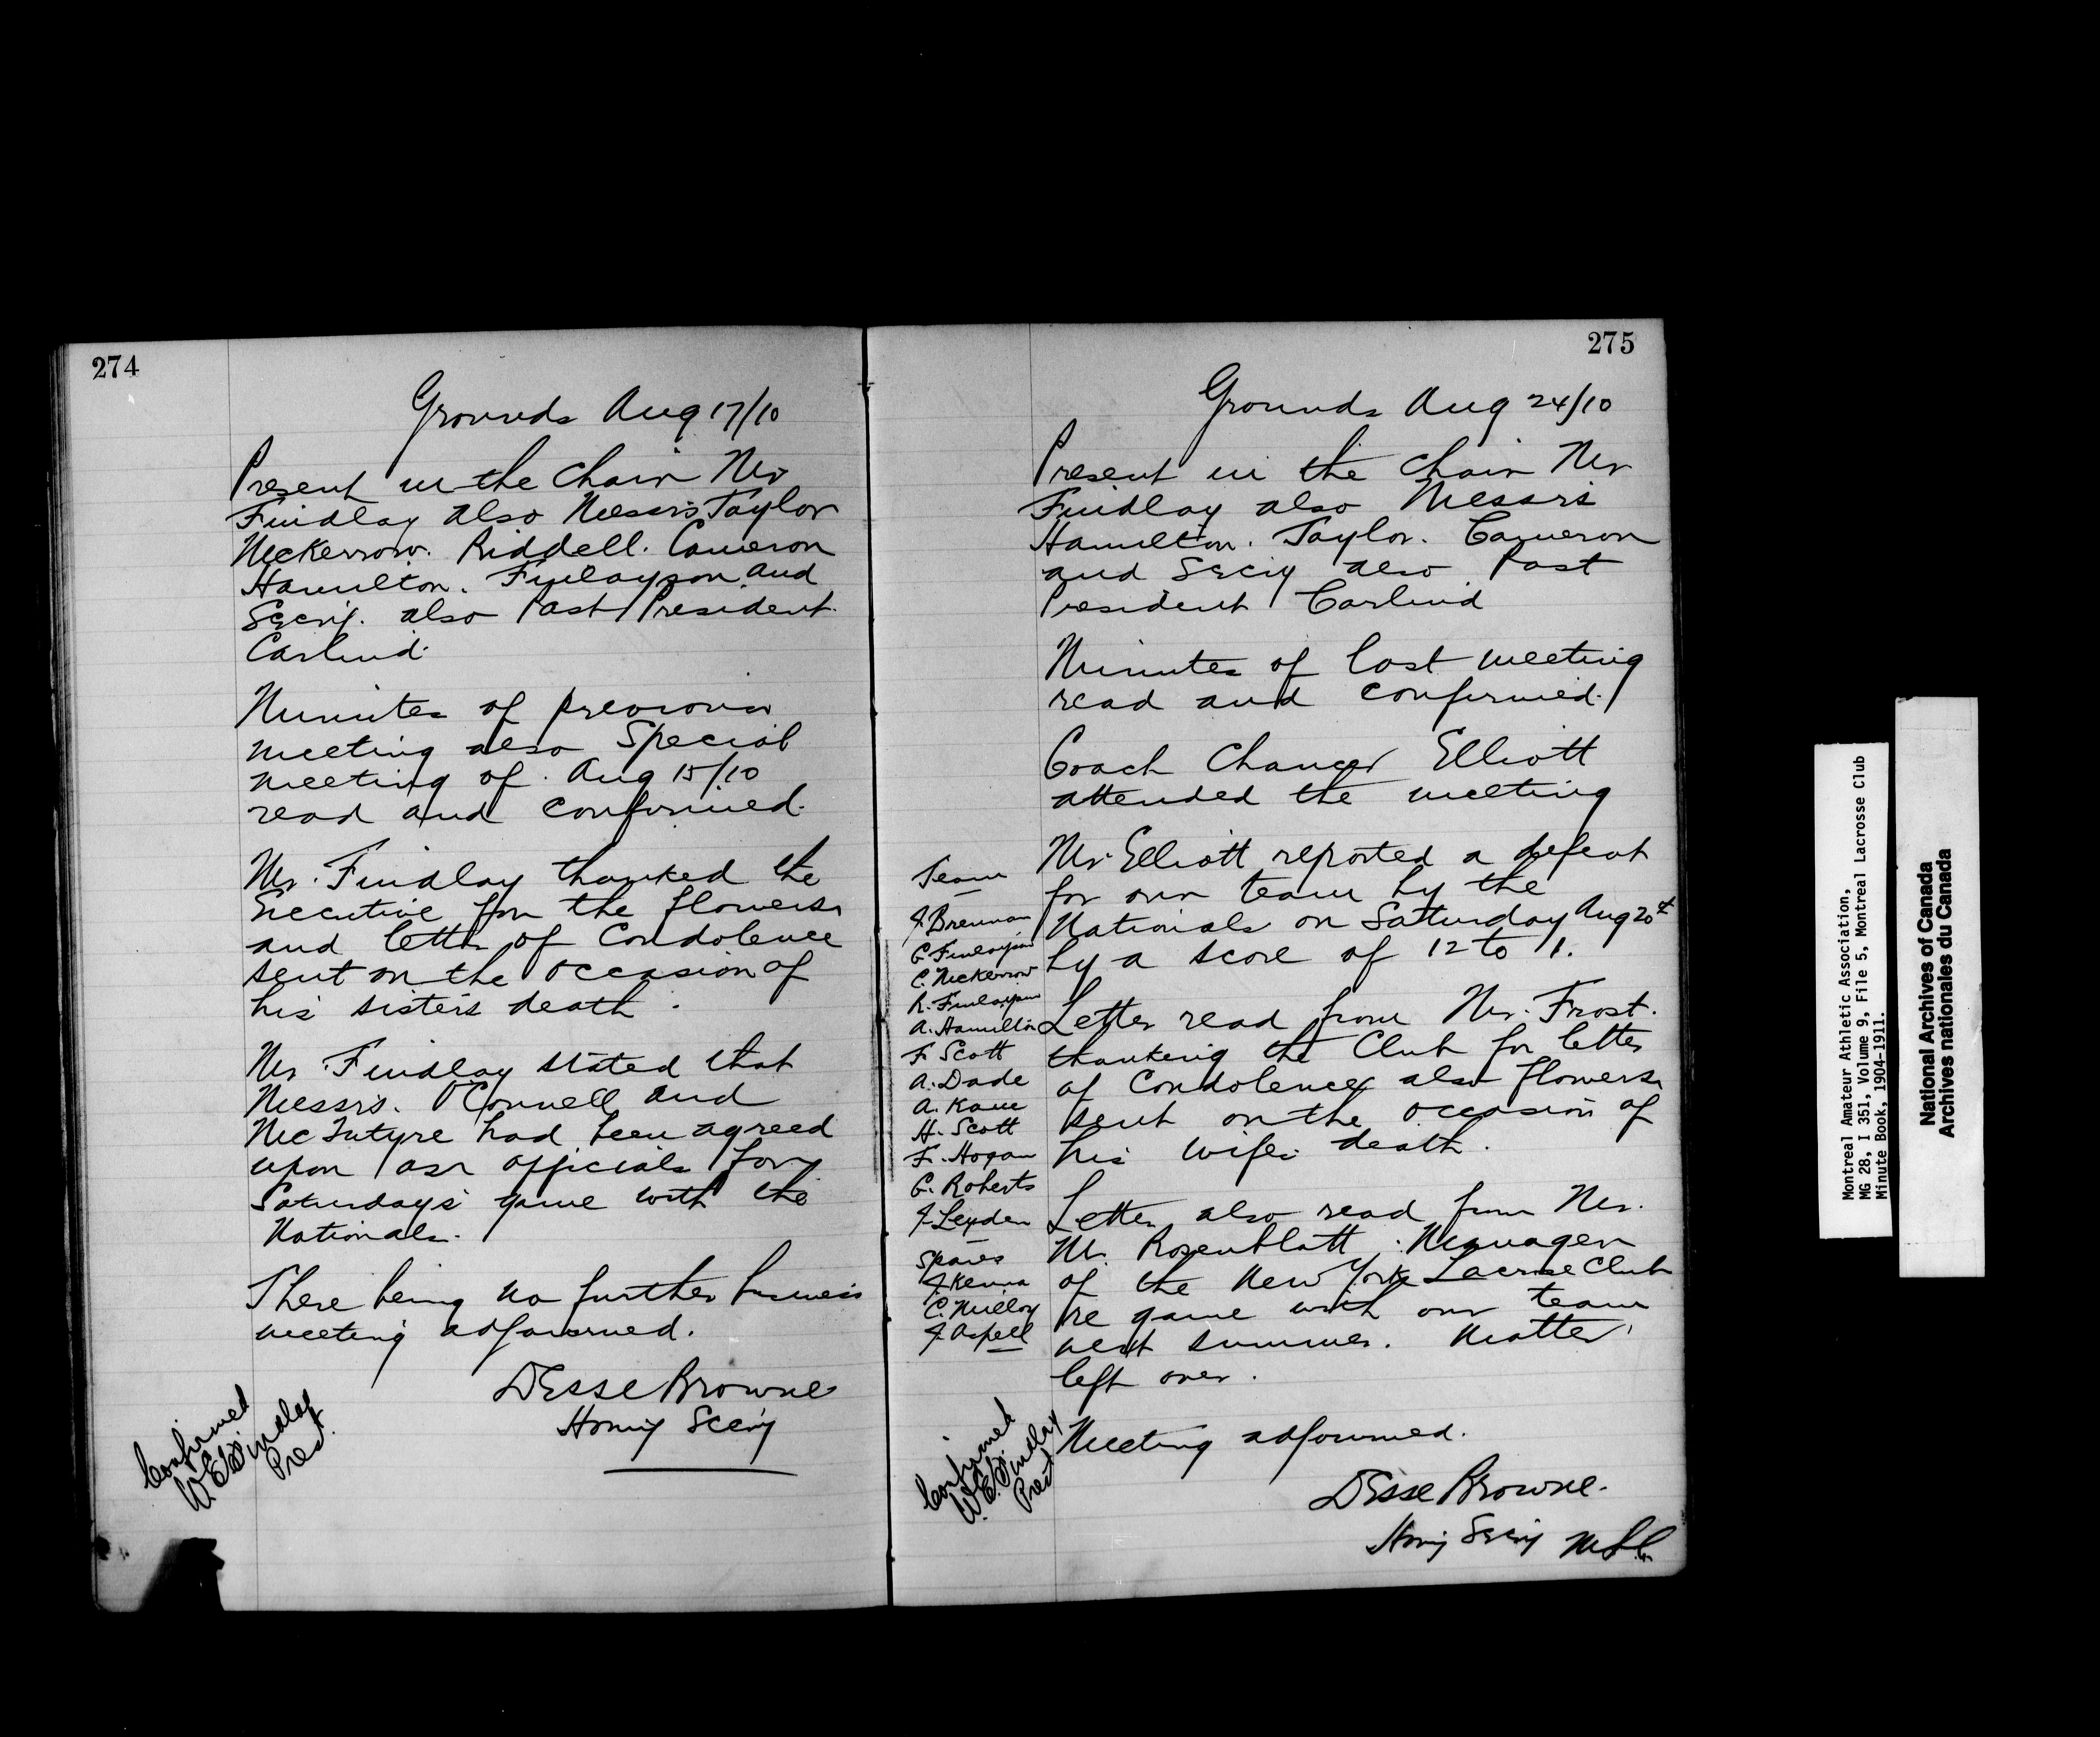 274
Grounds Aug 17/10
Present in the Chair Mr
Findlay also Messrs Taylor
McKerrow. Riddell. Cameron
Hamilton. Finlayson and
Secy. also Past President
Carlind.
Minutes of previous
meeting also Special
meeting of. Aug 15/10
read and confirmed.
Mr. Findlay thanked the
Executive for the flowers
and letter of Condolence
sent on the occasion of
his sisters death.
Mr Findlay stated that
Messrs. O'Connell and
McIntyre had been agreed
upon as officials for
Saturdays game with the
Nationals.
There being no further business
meeting adjourned.
DEsse Browne
Hony Secy
Confirmed
W.E. Findlay
Pres.
275
Grounds Aug 24/10
Present in the Chair Mr
Findlay also Messrs
Hamilton. Taylor. Cameron
and Secy also Past
President Carlind
Minutes of last meeting
read and confirmed.
Coach Chancer Elliott
attended the meeting
Mr. Elliott reported a defeat
for our team by the
Nationals on Saturday Aug 20th
by a score of 12 to 1.
Letter read from Mr. Frost.
thanking the Club for letter
of Condolence also flowers
sent on the occasion of
his wifes death.
Letter also read from Mr.
M. Rosenblatt. Manager
of the New York Lacrosse Club
re game with our team
next summer. Matter
left over.
Meeting adjourned.
DEsse Browne.
Hony Secy
Team
J. Brennan
G. Finlayson
C. McKerrow
R. Finlayson
A. Hamilton
F. Scott
A. Dade
A. Kane
H. Scott
F. Hogan
G. Roberts
J. Leyden
Spares
J. Kenna
C. Milloy
J. Aspell
Confirmed
W.E. Findlay
Prest
Montreal Amateur Athletic Association,
MG 28, I 351, Volume 9, File 5, Montreal Lacrosse Club
Minute Book, 1904-1911.
National Archives of Canada
Archives nationales du Canada